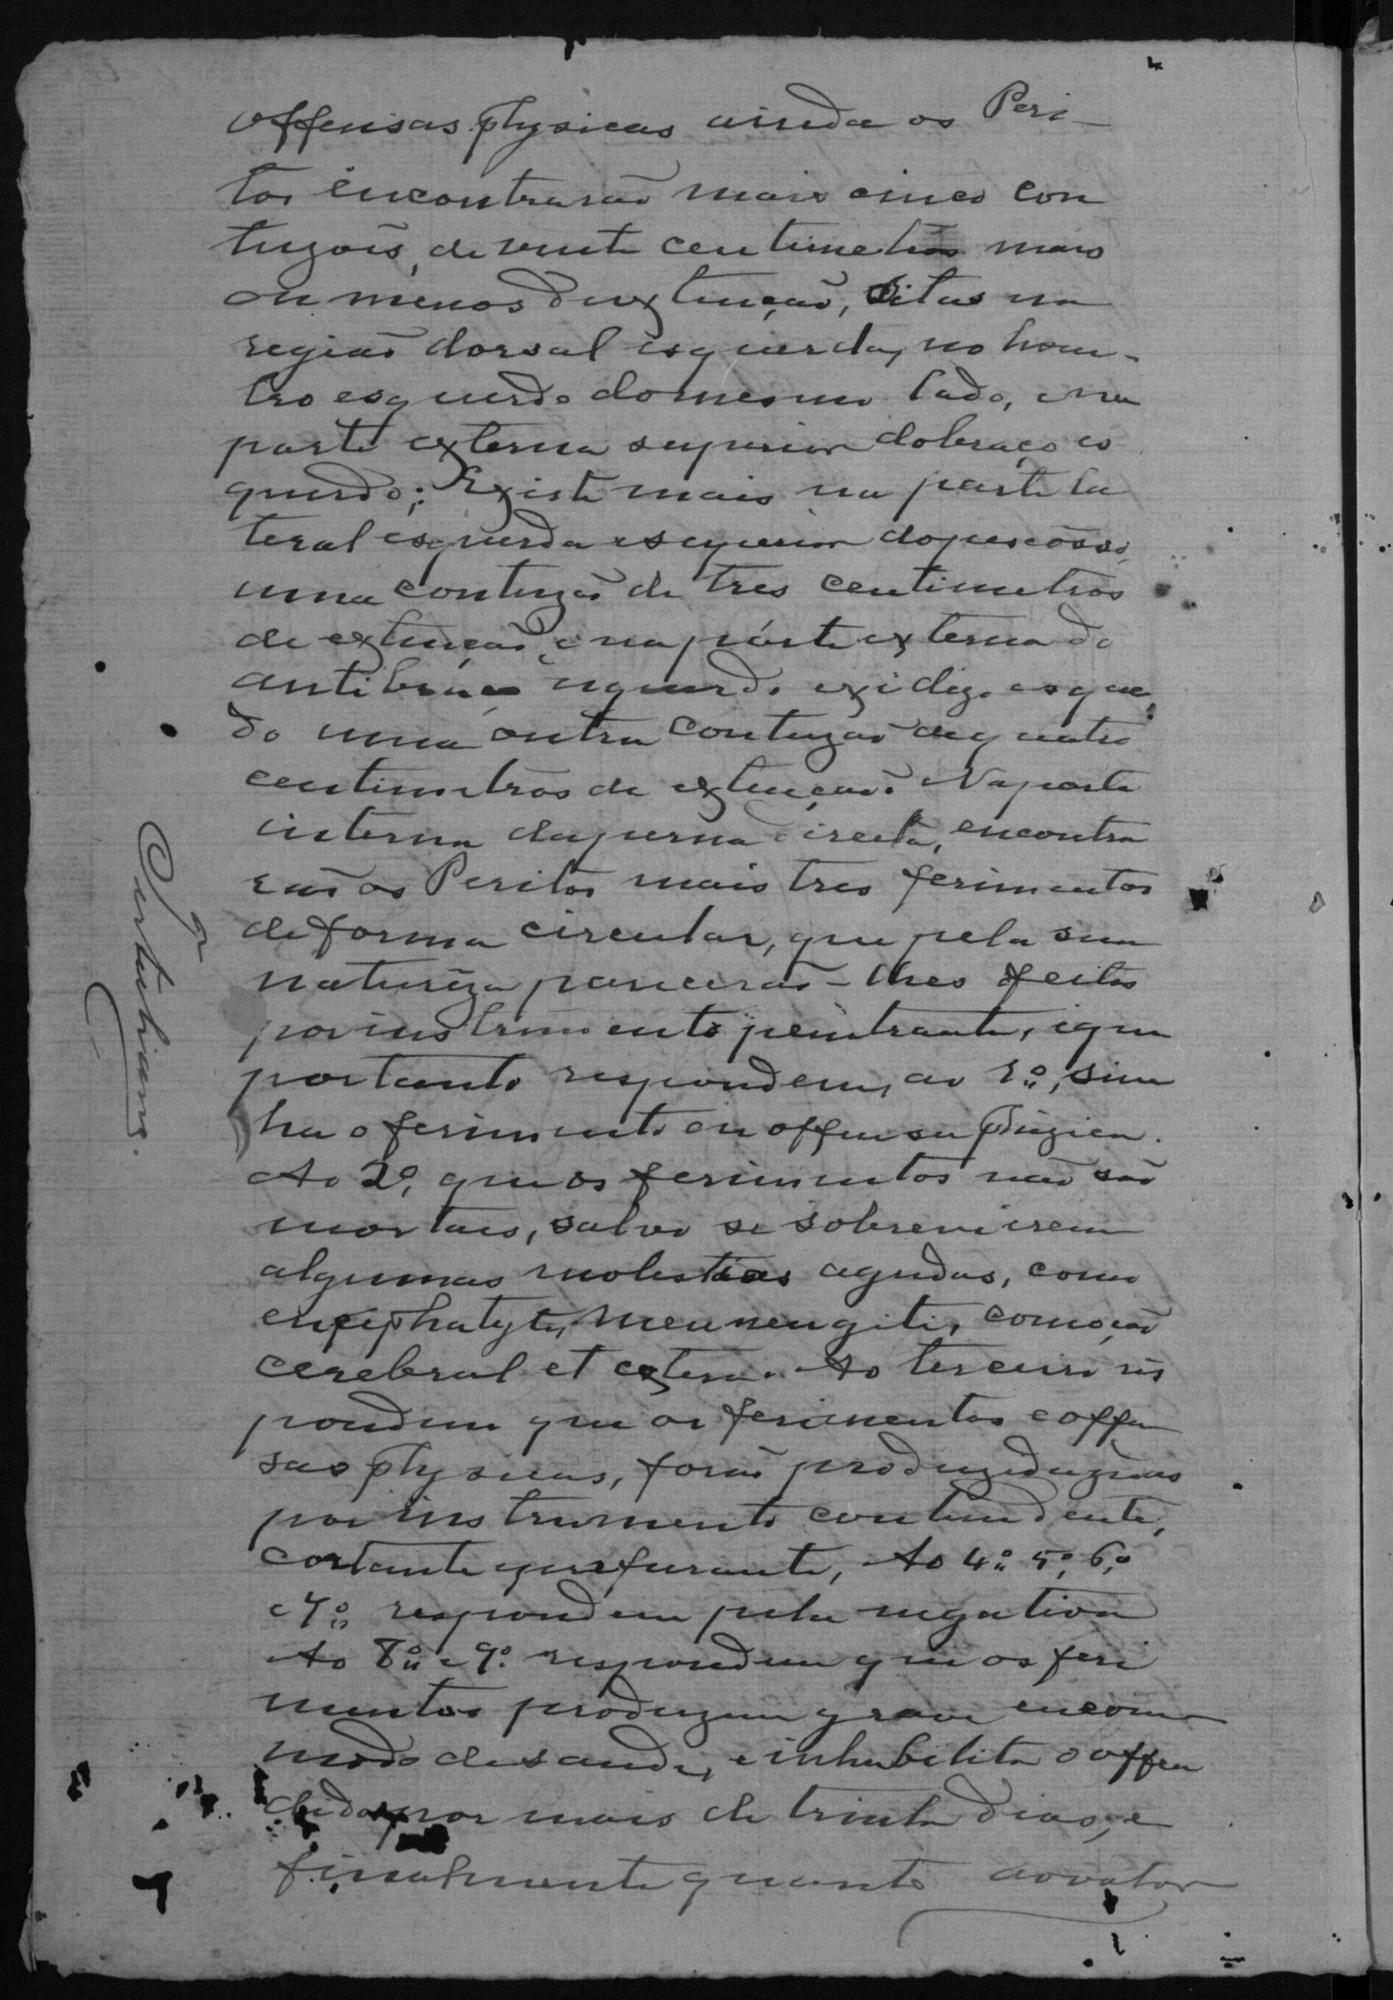 offensas physicas ainda os Peri-
tos encontrarão mais cinco con
tuzois, de vinte centimetros mais
ou menos de extenção, sitas na
região dorsal esquerda, no hom-
bro esquerdo do mesmo lado, e na
parte externa superior do braço es
querdo; Existe mais na parte la
teral esquerda e superior do pescosso,
uma contuzão de tres centimetros
de extenção, e na párte externa do
antibraço esquerdo exi digo esquer
do uma outra contuzão de quatro
centimetros de extenção. Na parte
interna da perna direita, encontra
rão os Peritos mais tres ferimentos
de forma circular, que pela sua
natureza parecerão-lhes feitos
por instrumento penitrante, e que
portanto respondem, ao 1º, sim
ha o ferimento ou offensa phizica.
Ao 2º, que os ferimentos não são
mortaes, salvo se sobrevierem
algumas molestias agudas, como
encephalyte, mennengite, comoção
cerebral et cetera. Ao terceiro res
pondem que os ferimentos e offen
sas physicas, forão produzidas
por instrumento contundente,
cortante e perfurante, Ao 4º 5º, 6º
e 7º respondem pela negativa
Ao 8º e 9º respondem que os feri
mentos produzem grave encom
modo de saude, e inhabilita o offen
dido por mais de trinta dias, e
finalmente quanto ao valor
Sertuliano